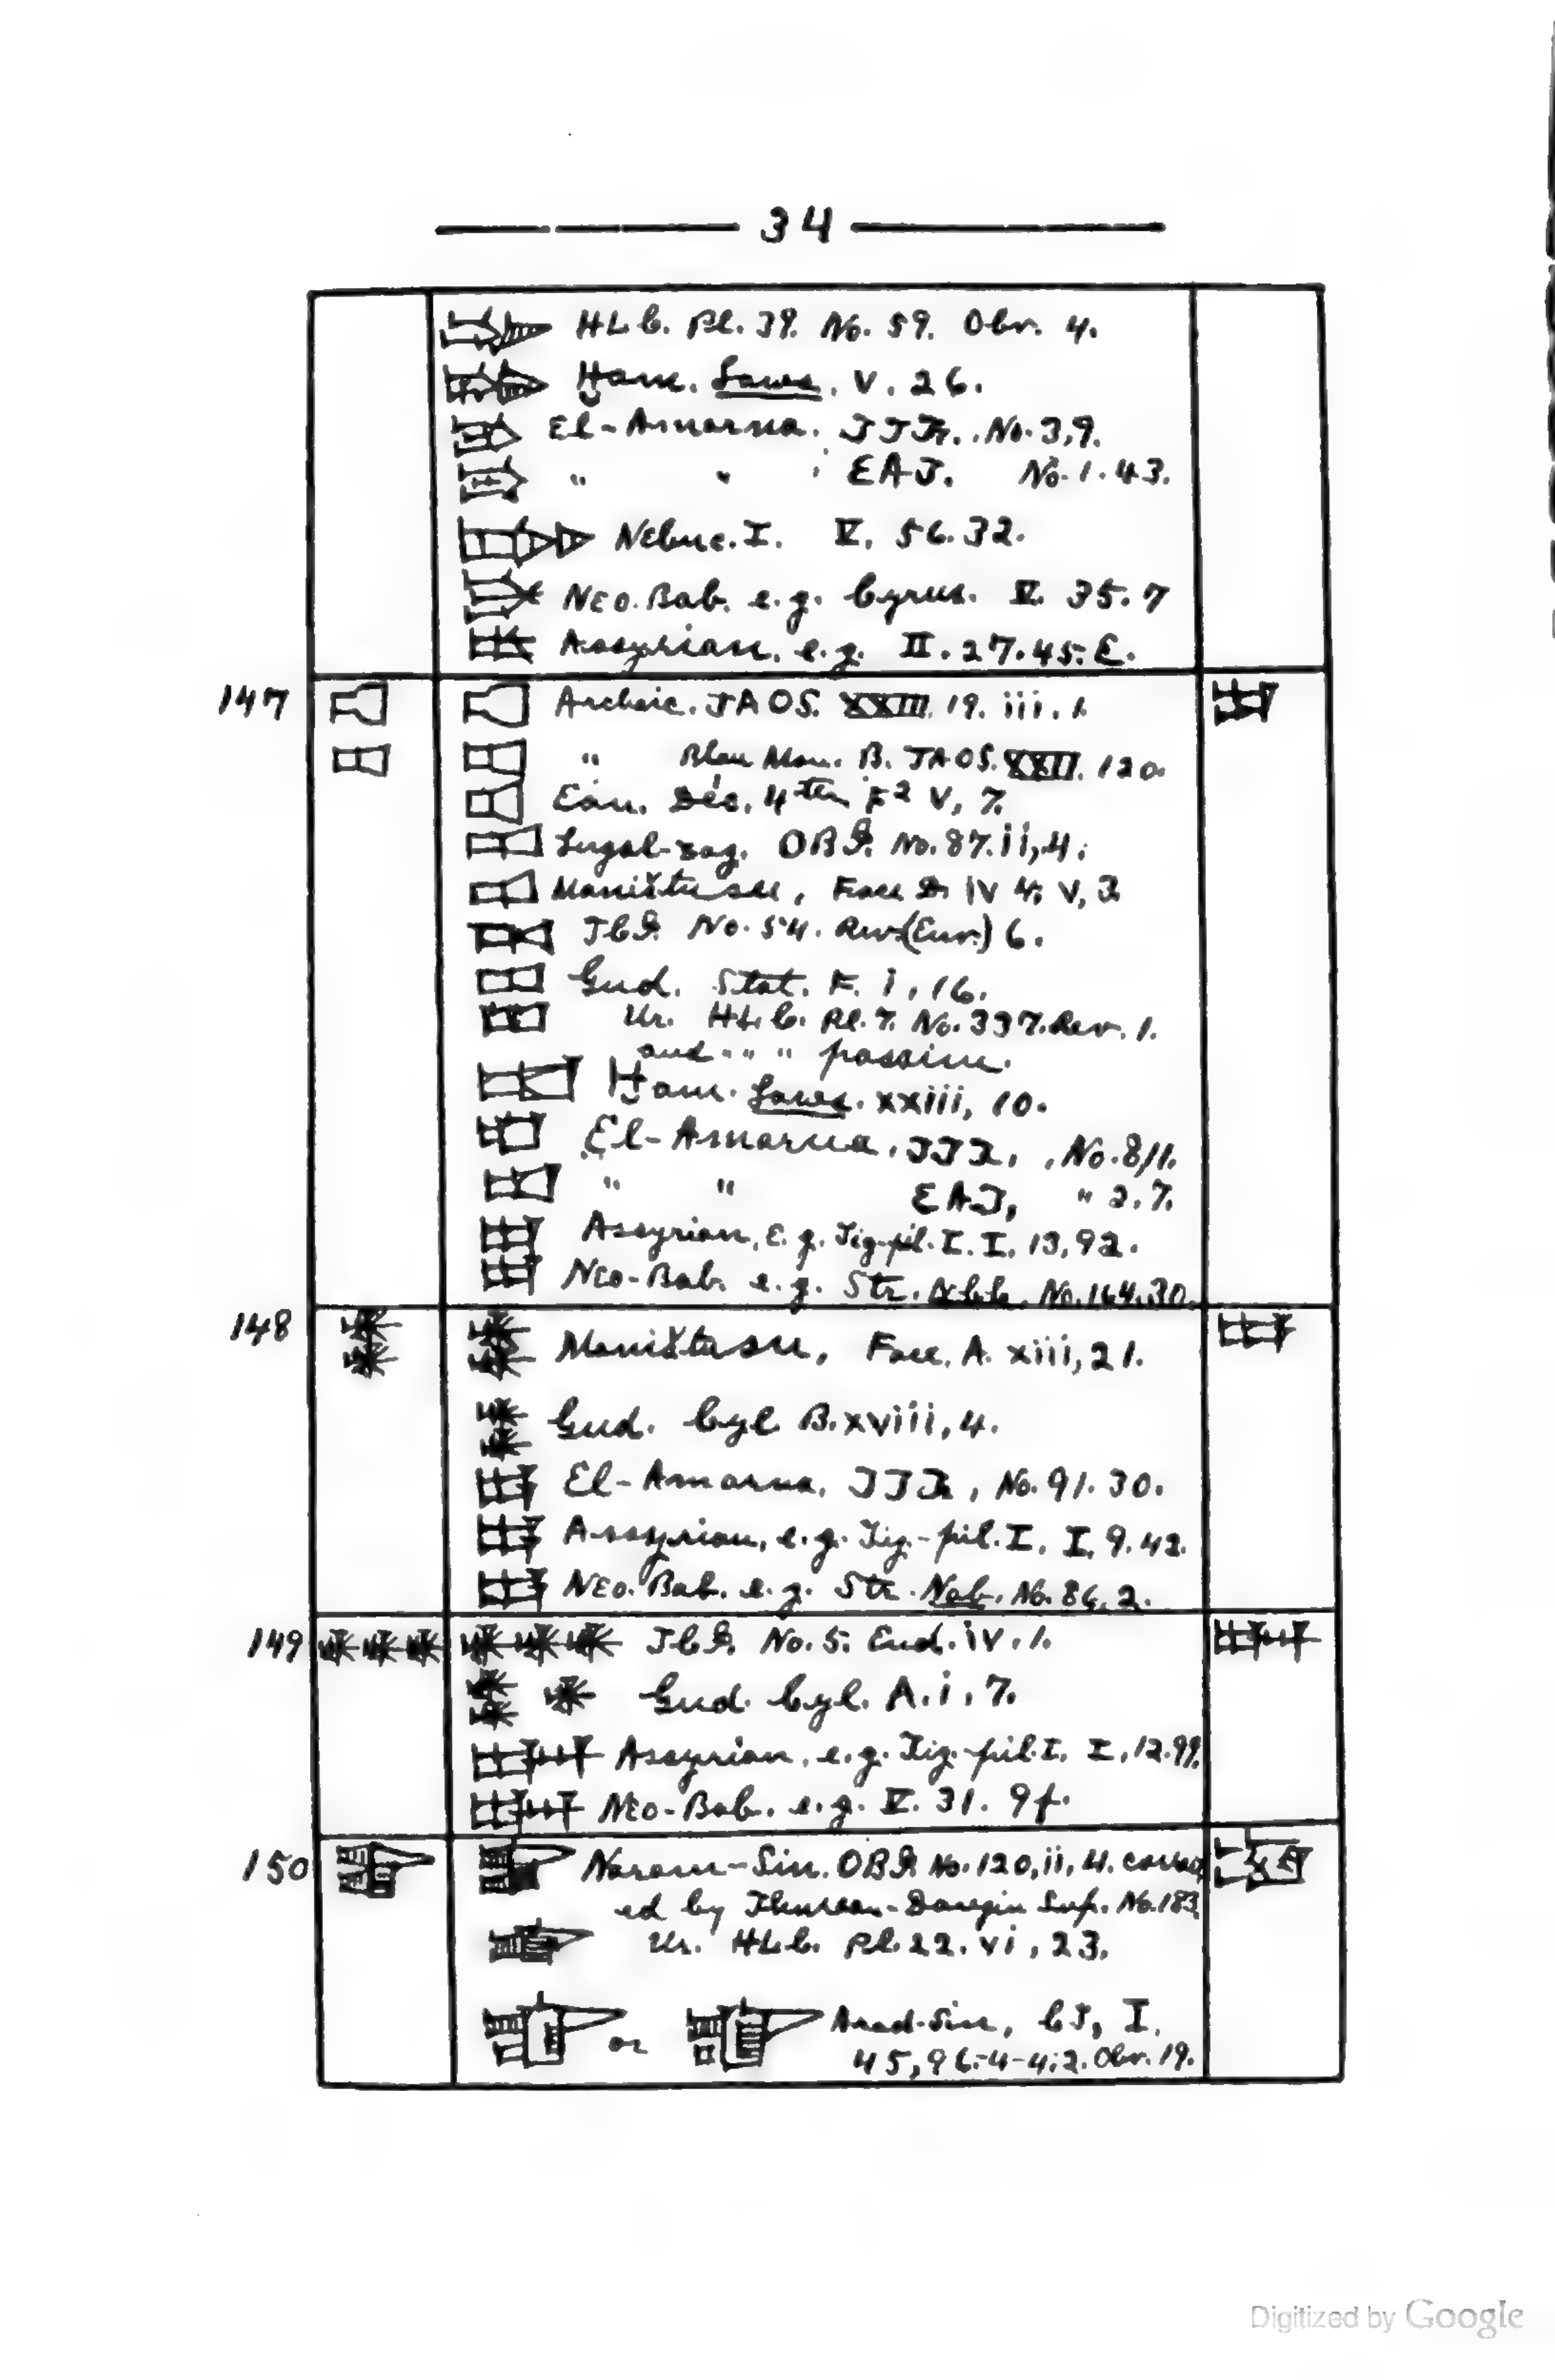 34
HLC. Pl. 39. No. 59. Obv. 4.
Ḫam. Laws. V. 26.
El-Amarna. No. 3,9.
" " EAT. No. 1. 43.
Nebuc. I. V. 56. 32.
Neo. Bab. e.g. Cyrus. V. 35. 7
Assyrian. e.g. II. 27. 45. E.
147 Archaic. JAOS. XXIII. 19. iii. 1.
" Blau Mon. B. JAOS. XXII. 120.
Ean. Déc. 4ter F2 V, 7.
Lugal-zag. OBI. No. 87. ii, 4.
Maništusu, Face D. IV 4. V, 3
TCI. No. 54. Rev. (Eur.) 6.
Gud. Stat. F. i, 16.
Ur. HLC. Pl. 7. No. 337. Rev. 1.
and " " " passim.
Ḫam. Laws. xxiii, 10.
El-Amarna, No. 8,11.
" " EAT, " 2. 7.
Assyrian, e.g. Tig-pil. I. I. 13, 92.
Neo-Bab. e.g. Str. No. 164. 30.
148 Maništusu, Face. A. xiii, 21.
Gud. Cyl B. xviii, 4.
El-Amarna. No. 91. 30.
Assyrian, e.g. Tig.-pil. I. I. 9. 42.
Neo. Bab. e.g. Str. Nab. No. 86. 2.
149 TCI. No. 5. End. iv. 1.
Gud. Cyl. A. i, 7.
Assyrian, e.g. Tig.-pil. I. I, 12. 99.
Neo-Bab. e.g. V. 31. 9f.
150 Naram-Sin. OBI. No. 120, ii, 4.
ed by Thureau-Dangin Sup. No. 183.
Ur. HLC. Pl. 22. vi, 23.
or Arad-Sin, CT, I.
45, 96-4-4; 2. Obv. 19.
Digitized by Google